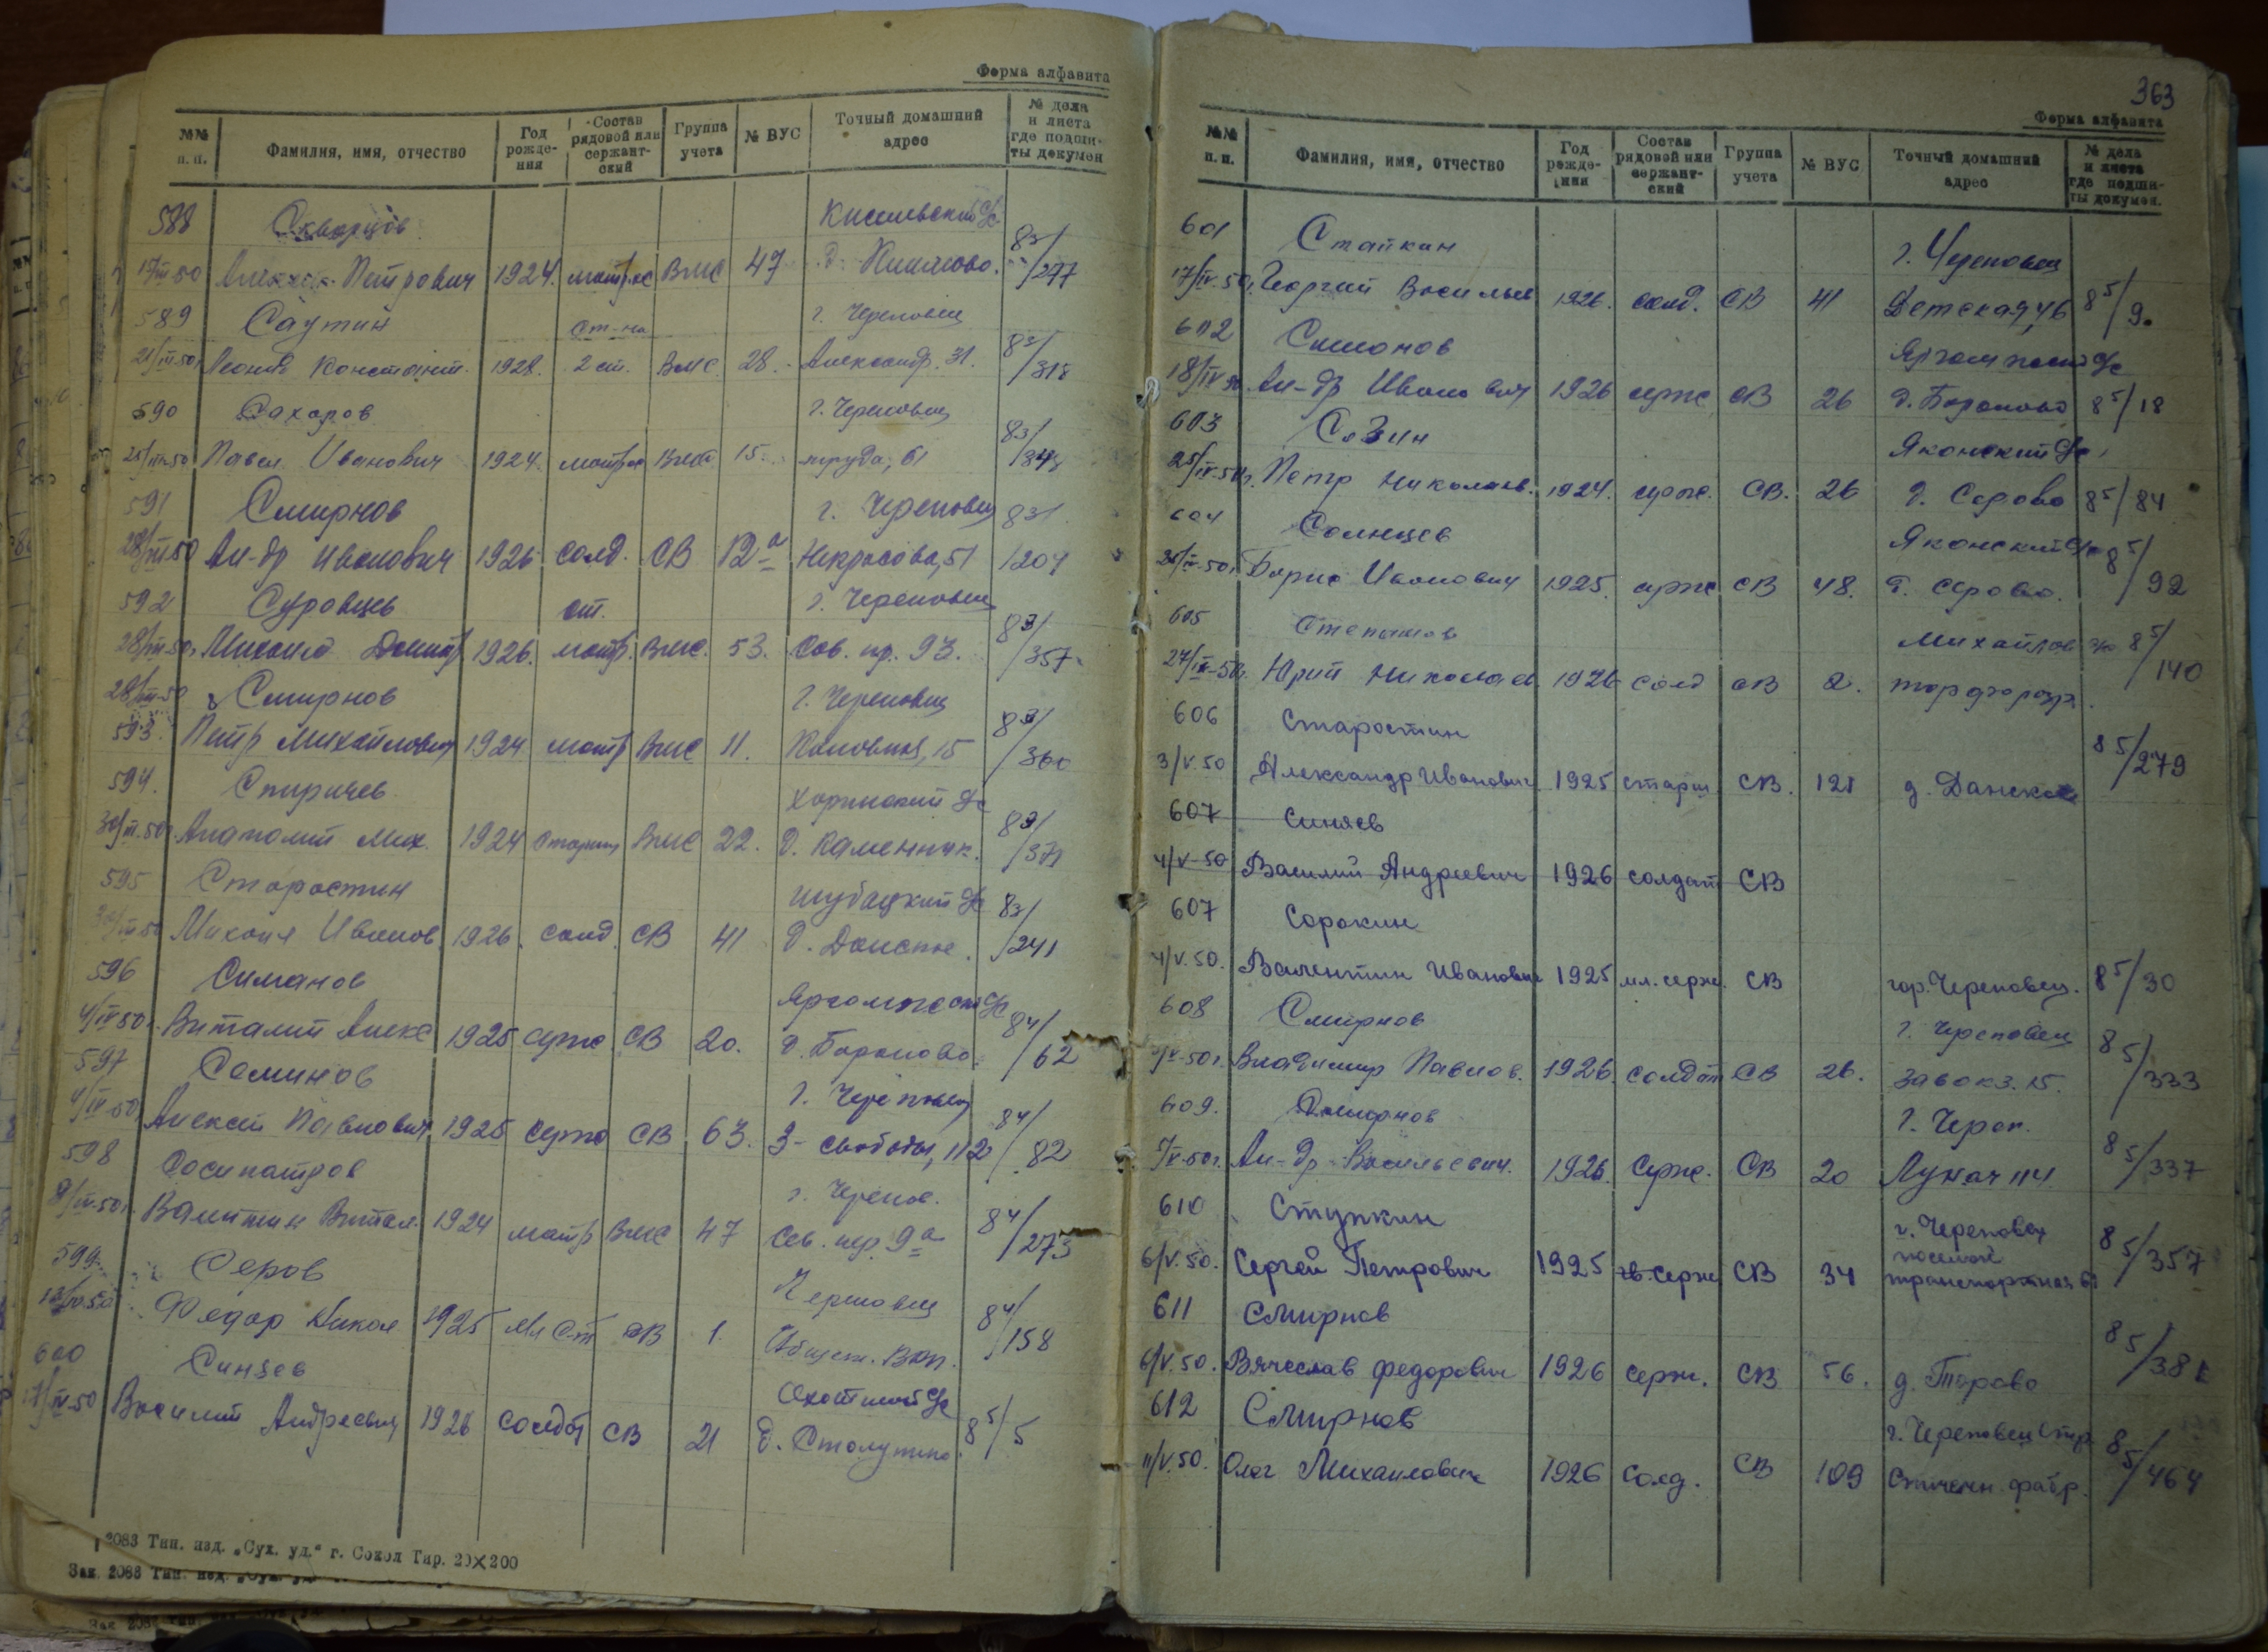 Форма алфавита
№№ п. п. Фамилия, имя, отчество Год рожде- ния Состав рядовой или сержант- ский Группа учета № ВУС Точный домашний адрес № дела и листа где подши- ты докумен
588 Скворцов
17/III 50 Петрович 1924. матрос ВМС 47 д. 83/297
589 Саутин ст-на г. Череповец
21/III 50 Леонид Констант. 1928. 2 ст. ВМС. 28. Александр. 31. 83/318
590 Сахаров г. Череповец
25/III 50 Павел Иванович 1924. матрос ВМС 15. труда, 61
591 Смирнов г. Череповец 83/
28/III 50 Ал-др Иванович 1926 солд. СВ 12а Некрасова, 51 /204
592 Суровцев ст. г. Череповец
28/III-50г. Михаил Дмитр 1926. матр. ВМС. 53. Сов. пр. 93. 83/357
28/III-50 Смирнов г. Череповец
593. Петр Михайлович 1924 матр ВМС 11. 15 83/360
594. Спиричев
30/III.50г. Анатолий Мих. 1924 старши ВМС 22. д. Каменник. 83/371
595 Старостин Шубацкий с/с
30/III 50 Михаил Иванов 1926. солд. СВ 41 д. Донское. 83/241
596 Симанов
4/IV 50г. Виталий Алекс 1925 серж. СВ 20. д. Бараново 84/62
597 Семинов г. Череповец
4/IV-50 Алексей Павлович 1925 серж СВ 63. З-Свободы, 112 84/82
598 Сосипатров г. Черепов.
8/IV.50г. Валентин Витал. 1924 матр ВМС 47 Сов. пр. 9а 84/273
599 Серов Череповец
Федор Никол 1925 Мл Ст СВ 1. 84/158
600 Синяев
17/IV-50 Василий Андреевич 1926 солдат СВ 21 д. Столупино. 85/5
2083 Тип. изд. „Сух. уд.“ г. Сокол Тир. 20×200
Зак 2083 Тип. изд. „Сух. уд.
363
Форма алфавита
№№ п. п. Фамилия, имя, отчество Год рожде- ния Состав рядовой или сержант- ский Группа учета № ВУС Точный домашний адрес № дела и листа где подши- ты докумен.
601 Стапкин г. Череповец
17/IV.50г. Георгий Васильев 1926. солд. СВ 41 Детская, 46 85/9.
602 Симонов
18/IV 50 Ал-др Иванович 1926 серж СВ 26 д. Бараново 85/18
603 Созин Яконский с/с
25/IV.50г. Петр Николаев. 1924. серж. СВ. 26 д. Серово 85/84
604 Солнцев Яконский с/с 85/
Борис Иванович 1925. серж СВ 48. д. Серово. 92
605 Степанов Михайлов с/с 85/
27/IV-50г. Юрий Николаев. 1926 солд СВ 2. торфоразр. 140
606 Старостин
3/V.50 Александр Иванович 1925 старш СВ. 121 д. Данское 85/279
607 Синяев
4/V-50 Василий Андреевич 1926 солдат СВ
607 Сорокин
4/V.50. Валентин Иванович 1925 мл. серж. СВ гор. Череповец. 85/30
608 Смирнов г. Череповец
Владимир Павлов. 1926. солдат СВ 26. Завокз. 15. 85/333
609. Смирнов г. Череп.
Ал-др Васильевич. 1926. Серж. СВ 20 Лунач 114. 85/337
610 Ступкин г. Череповец
поселок
6/V.50. Сергей Петрович 1925 гв. серж СВ 34 транспортная 85/357
611 Смирнов
6/V.50. Вячеслав Федорович 1926 серж. СВ 56. д. 85/381
612 Смирнов г. Череповец
11/V.50. Олег Михаилович 1926 Солд. СВ 109 Спичечн. фабр. 85/464